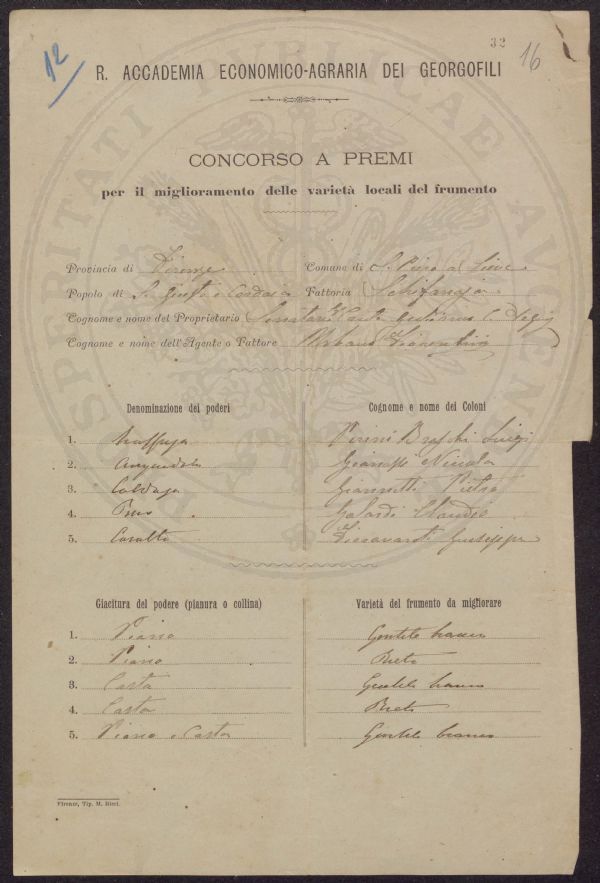 12
32
16
R. ACCADEMIA ECONOMICO-AGRARIA DEI GEORGOFILI
PROSPERITATI PUBLICAE AUGENDAE
CONCORSO A PREMI
per il miglioramento delle varietà locali del frumento
Provincia di Firenze Comune di S. Piero a Sieve
Popolo di S. Giusto a Fattoria Schifanoja
Cognome e nome del Proprietario
Cognome e nome dell'Agente o Fattore Urbano
Denominazione dei poderi Cognome e nome dei Coloni
1. Luigi
2. Nicola
3. Giannetti Pietro
4. Galardi Claudio
5. Casalta Giuseppe
Giacitura del podere (pianura o collina) Varietà del frumento da migliorare
1. Piano Gentile bianco
2. Piano Bieto
3. Costa Gentile bianco
4. Costa Bieto
5. Piano e Costa Gentile bianco
Firenze, Tip. M. Ricci.